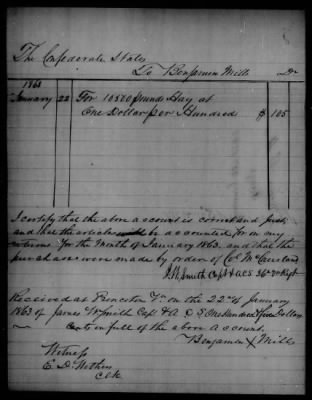 The Confederate States
To Benjamin Mills Dr
1863
January 22 For 10500 pounds Hay at
One Dollar per Hundred $ 105
I certify that the above account is correct and just,
and that the articles will be accounted for on my
returns for the month of January 1863. and that the
purchases were made by order of Col McCausland
J. W. Smith Capt & A.C.S 36th Va Regt
Received at Princeton Va on the 22nd of January
1863 of James W Smith Capt & A C S One Hundred & five Dollars
Cents in full of the above account.
Benjamin X Mills
Witness
E. D.
Clk